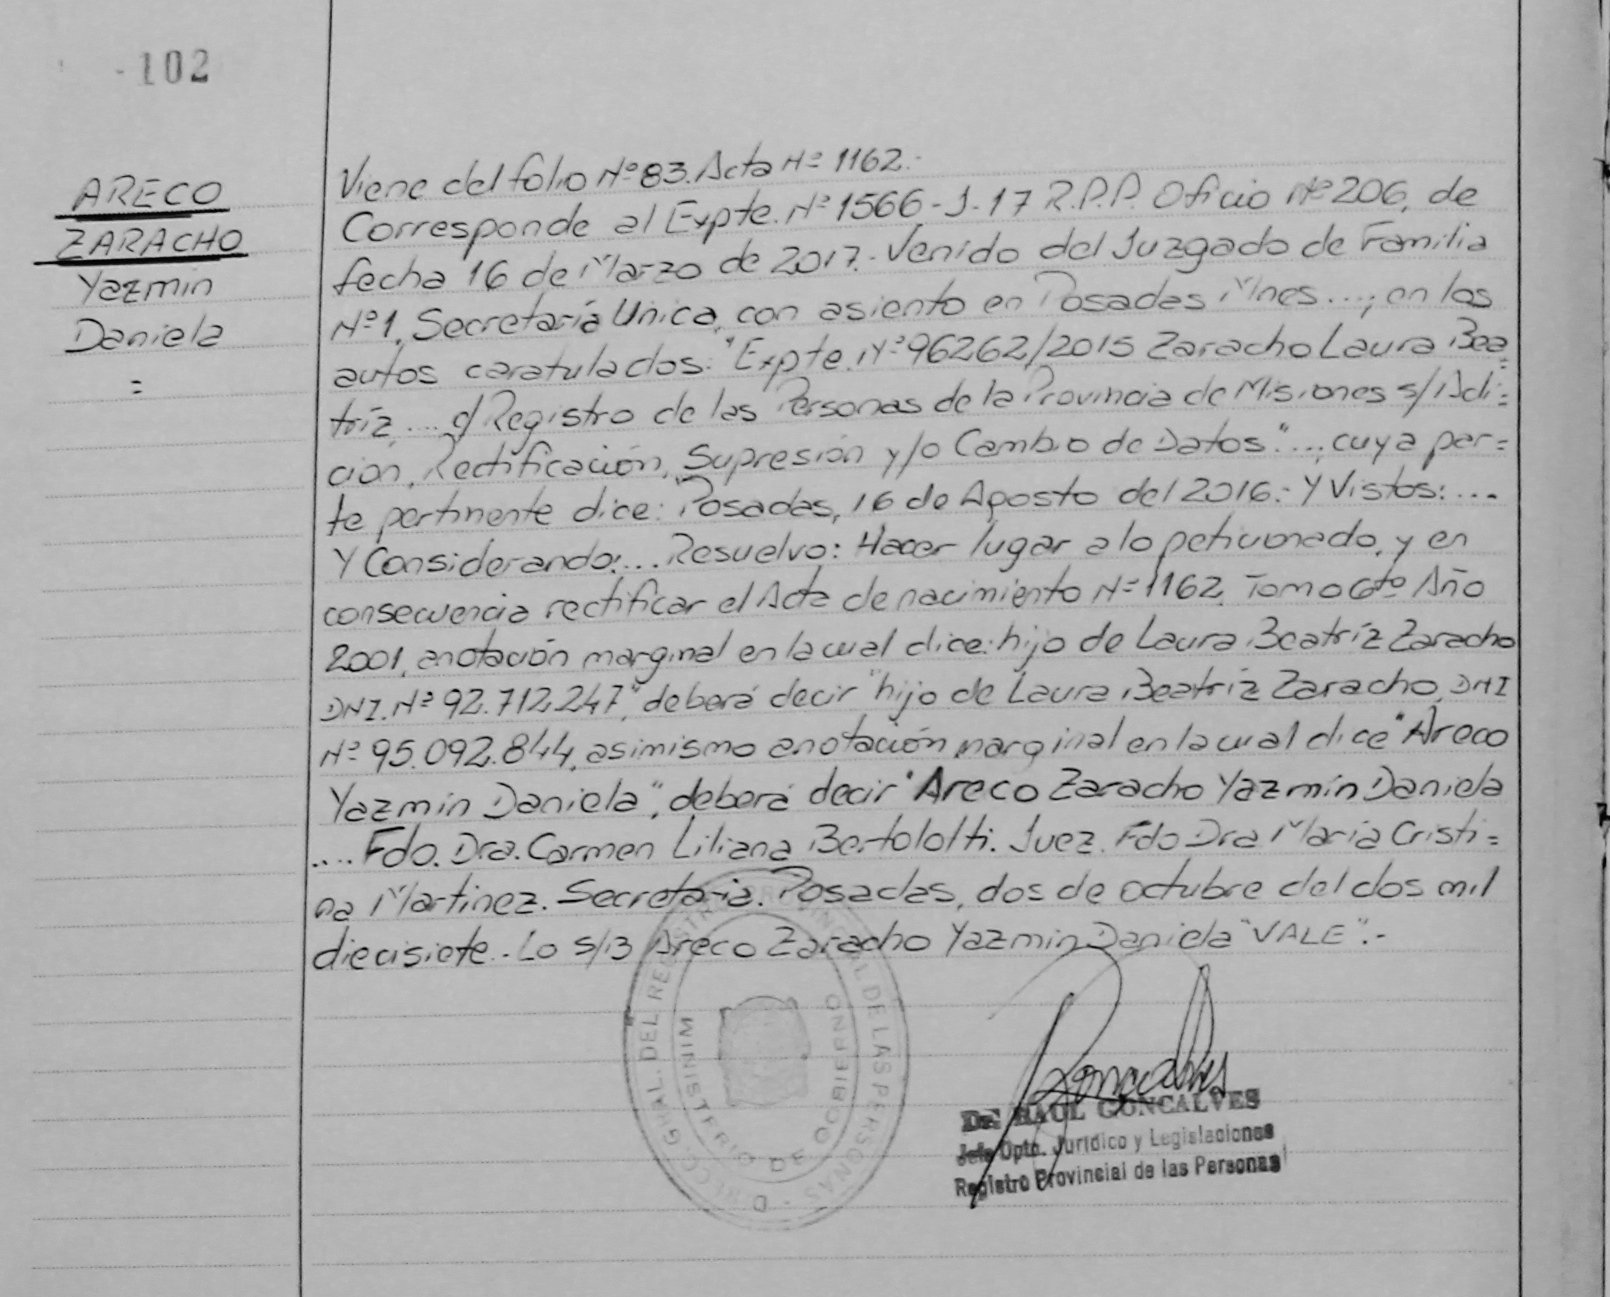 -102
ARECO
ZARACHO
Yazmin
Daniela
=
Viene del folio Nº 83. Acta Nº 1162.-
Corresponde al Expte. Nº 1566-J-17 R.P.P. Oficio Nº 206, de
fecha 16 de Marzo de 2017.- Venido del Juzgado de Familia
Nº 1, Secretaría Unica, con asiento en Posadas Mnes...., en los
autos caratulados: "Expte. Nº 96262/2015 Zaracho Laura Bea=
tríz .... c/ Registro de las Personas de la Provincia de Misiones s/ Adi=
ción, Rectificación, Supresión y/o Cambio de Datos"...; cuya par=
te pertinente dice: Posadas, 16 de Agosto del 2016.- Y Vistos:....
Y Considerando:... Resuelvo: Hacer lugar a lo peticionado, y en
consecuencia rectificar el Acta de nacimiento Nº 1162, Tomo 6to Año
2001, anotación marginal en la cual dice: hijo de Laura Beatríz Zaracho
DNI. Nº 92.712.247", deberá decir "hijo de Laura Beatríz Zaracho, DNI
Nº 95.092.844, asimismo anotación marginal en la cual dice "Areco
Yazmín Daniela", deberá decir "Areco Zaracho Yazmín Daniela
.... Fdo. Dra. Carmen Liliana Bertololti. Juez. Fdo Dra María Cristi=
na Martinez. Secretaria. Posadas, dos de octubre del dos mil
diecisiete.- Lo s/B Areco Zaracho Yazmin Daniela "VALE".-
DIRECC. GRAL. DEL REGISTRO PROVINCIAL DE LAS PERSONAS
MINISTERIO DE GOBIERNO
Dr. RAUL GONCALVES
Jefe Dpto. Jurídico y Legislaciones
Registro Provincial de las Personas